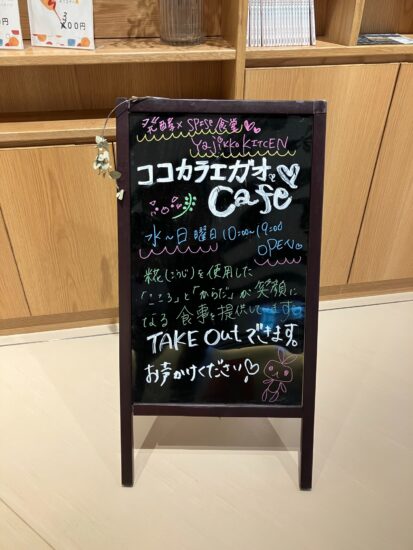 00円
発酵×Spice食堂
Yajikko KITCEN
ココカラエガオ
Cafe
水〜日曜日 10:00〜19:00
OPEN
糀(こうじ)を使用した
「こころ」と「からだ」が笑顔に
なる食事を提供しています。
TAKE Outできます。
お声かけください